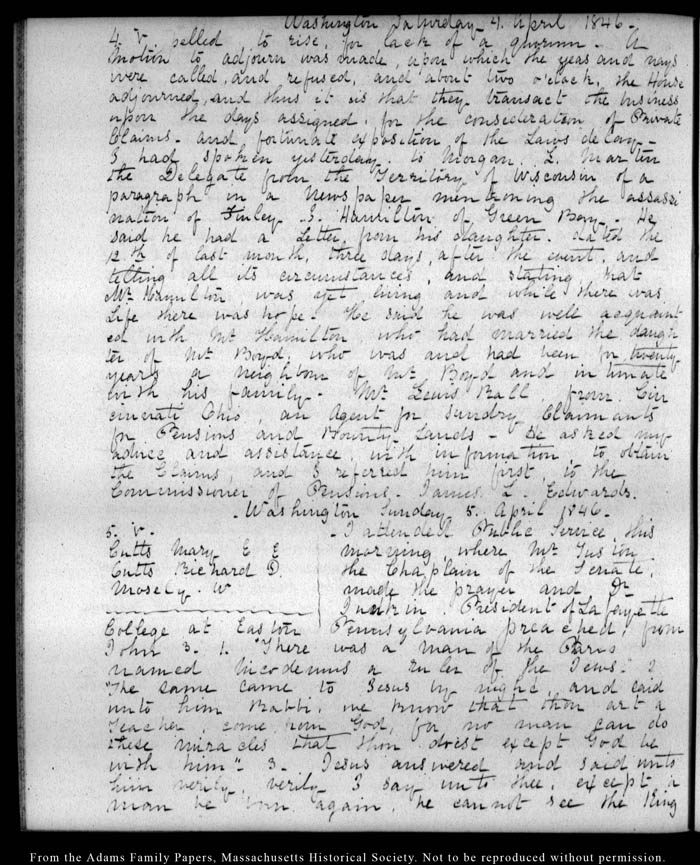 Washington Saturday 4. April 1846.
4. V. pelled to rise, for lack of a quorum. A
motion to adjourn was made, upon which the yeas and nays
were called, and refused, and about two o'clock, the House
adjourned, and thus it is that they transact the business
upon the days assigned, for the consideration of Private
Claims. and fortunate exposition of the Laws delay.
I had spoken yesterday, to Morgan. L. Martin
the Delegate from the Territory of Wisconsin of a
paragraph in a Newspaper mentioning the assassi
nation of Finley. S. Hamilton of Green Bay. He
said he had a Letter, from his daughter. dated the
12th of last month, three days, after the event, and
telling all its circumstances, and stating that
Mr Hamilton, was yet living and while there was
Life there was hope. He said he was well acquaint
ed with Mr Hamilton, who had married the daugh
ter of Mr Boyd, who was and had been for twenty
years a neighbour of Mr Boyd and intimate
with his family. Mr Lewis Ball, from Cin
cinnati Ohio, an Agent for sundry Claimants
for Pensions and Bounty Lands. He asked my
advice and assistance, with information, to obtain
the Claims, and I referred him first, to the
Commissioner of Pensions. James L. Edwards.
Washington Sunday. 5. April 1846.
5. V.
Cutts Mary E E
Cutts Richard D.
Mosely. W
I attended Public Service, this
morning, where Mr Tuston
the Chaplain of the Senate,
made the prayer and Dr
Junkin. President of La fayette
College at Easton Pennsylvania preached, from
John 3. 1. "There was a man of the Paris
named Nicodemus a ruler of the Jews." 2
"The same came to Jesus by night, and said
unto him Rabbi, we know that thou art a
Teacher, come from God, for no man can do
these miracles that thou doest except God be
with him" 3. Jesus answered and said unto
him verily, verily I say unto thee, except a
man be born again, he cannot see the King
From the Adams Family Papers, Massachusetts Historical Society. Not to be reproduced without permission.